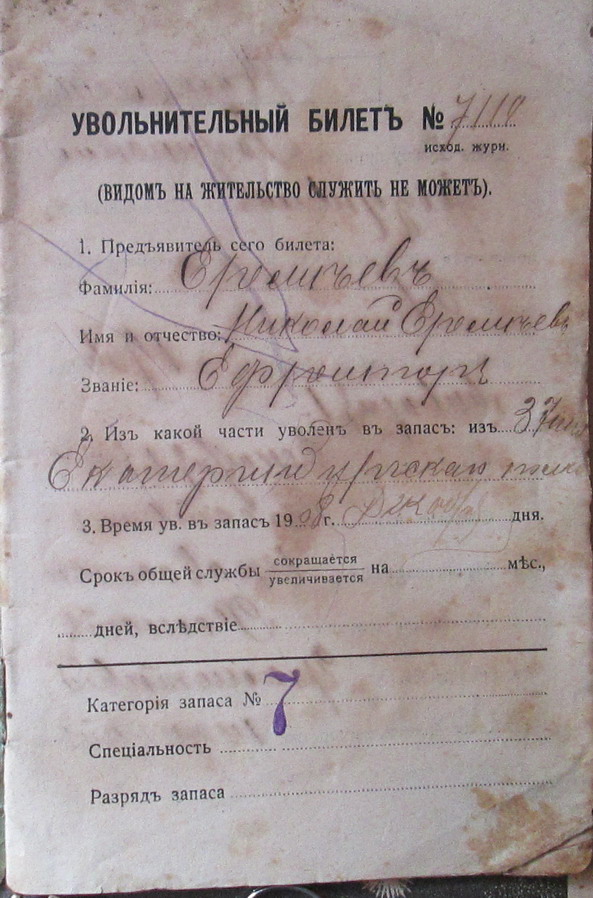 УВОЛЬНИТЕЛЬНЫЙ БИЛЕТЪ № 7110
исход. журн.
(ВИДОМЪ НА ЖИТЕЛЬСТВО СЛУЖИТЬ НЕ МОЖЕТЪ).
1. Предъявитель сего билета:
Фамилія: Еремѣевъ
Имя и отчество: Николай Еремѣевъ
Званіе: Ефрейторъ
2. Изъ какой части уволенъ въ запасъ: изъ 37
Екатеринбургскаго полка
3. Время ув. въ запасъ 1908 г. дня.
Срокъ общей службы сокращается
увеличивается на мѣс.,
дней, вслѣдствіе
Категорія запаса № 7
Спеціальность
Разрядъ запаса